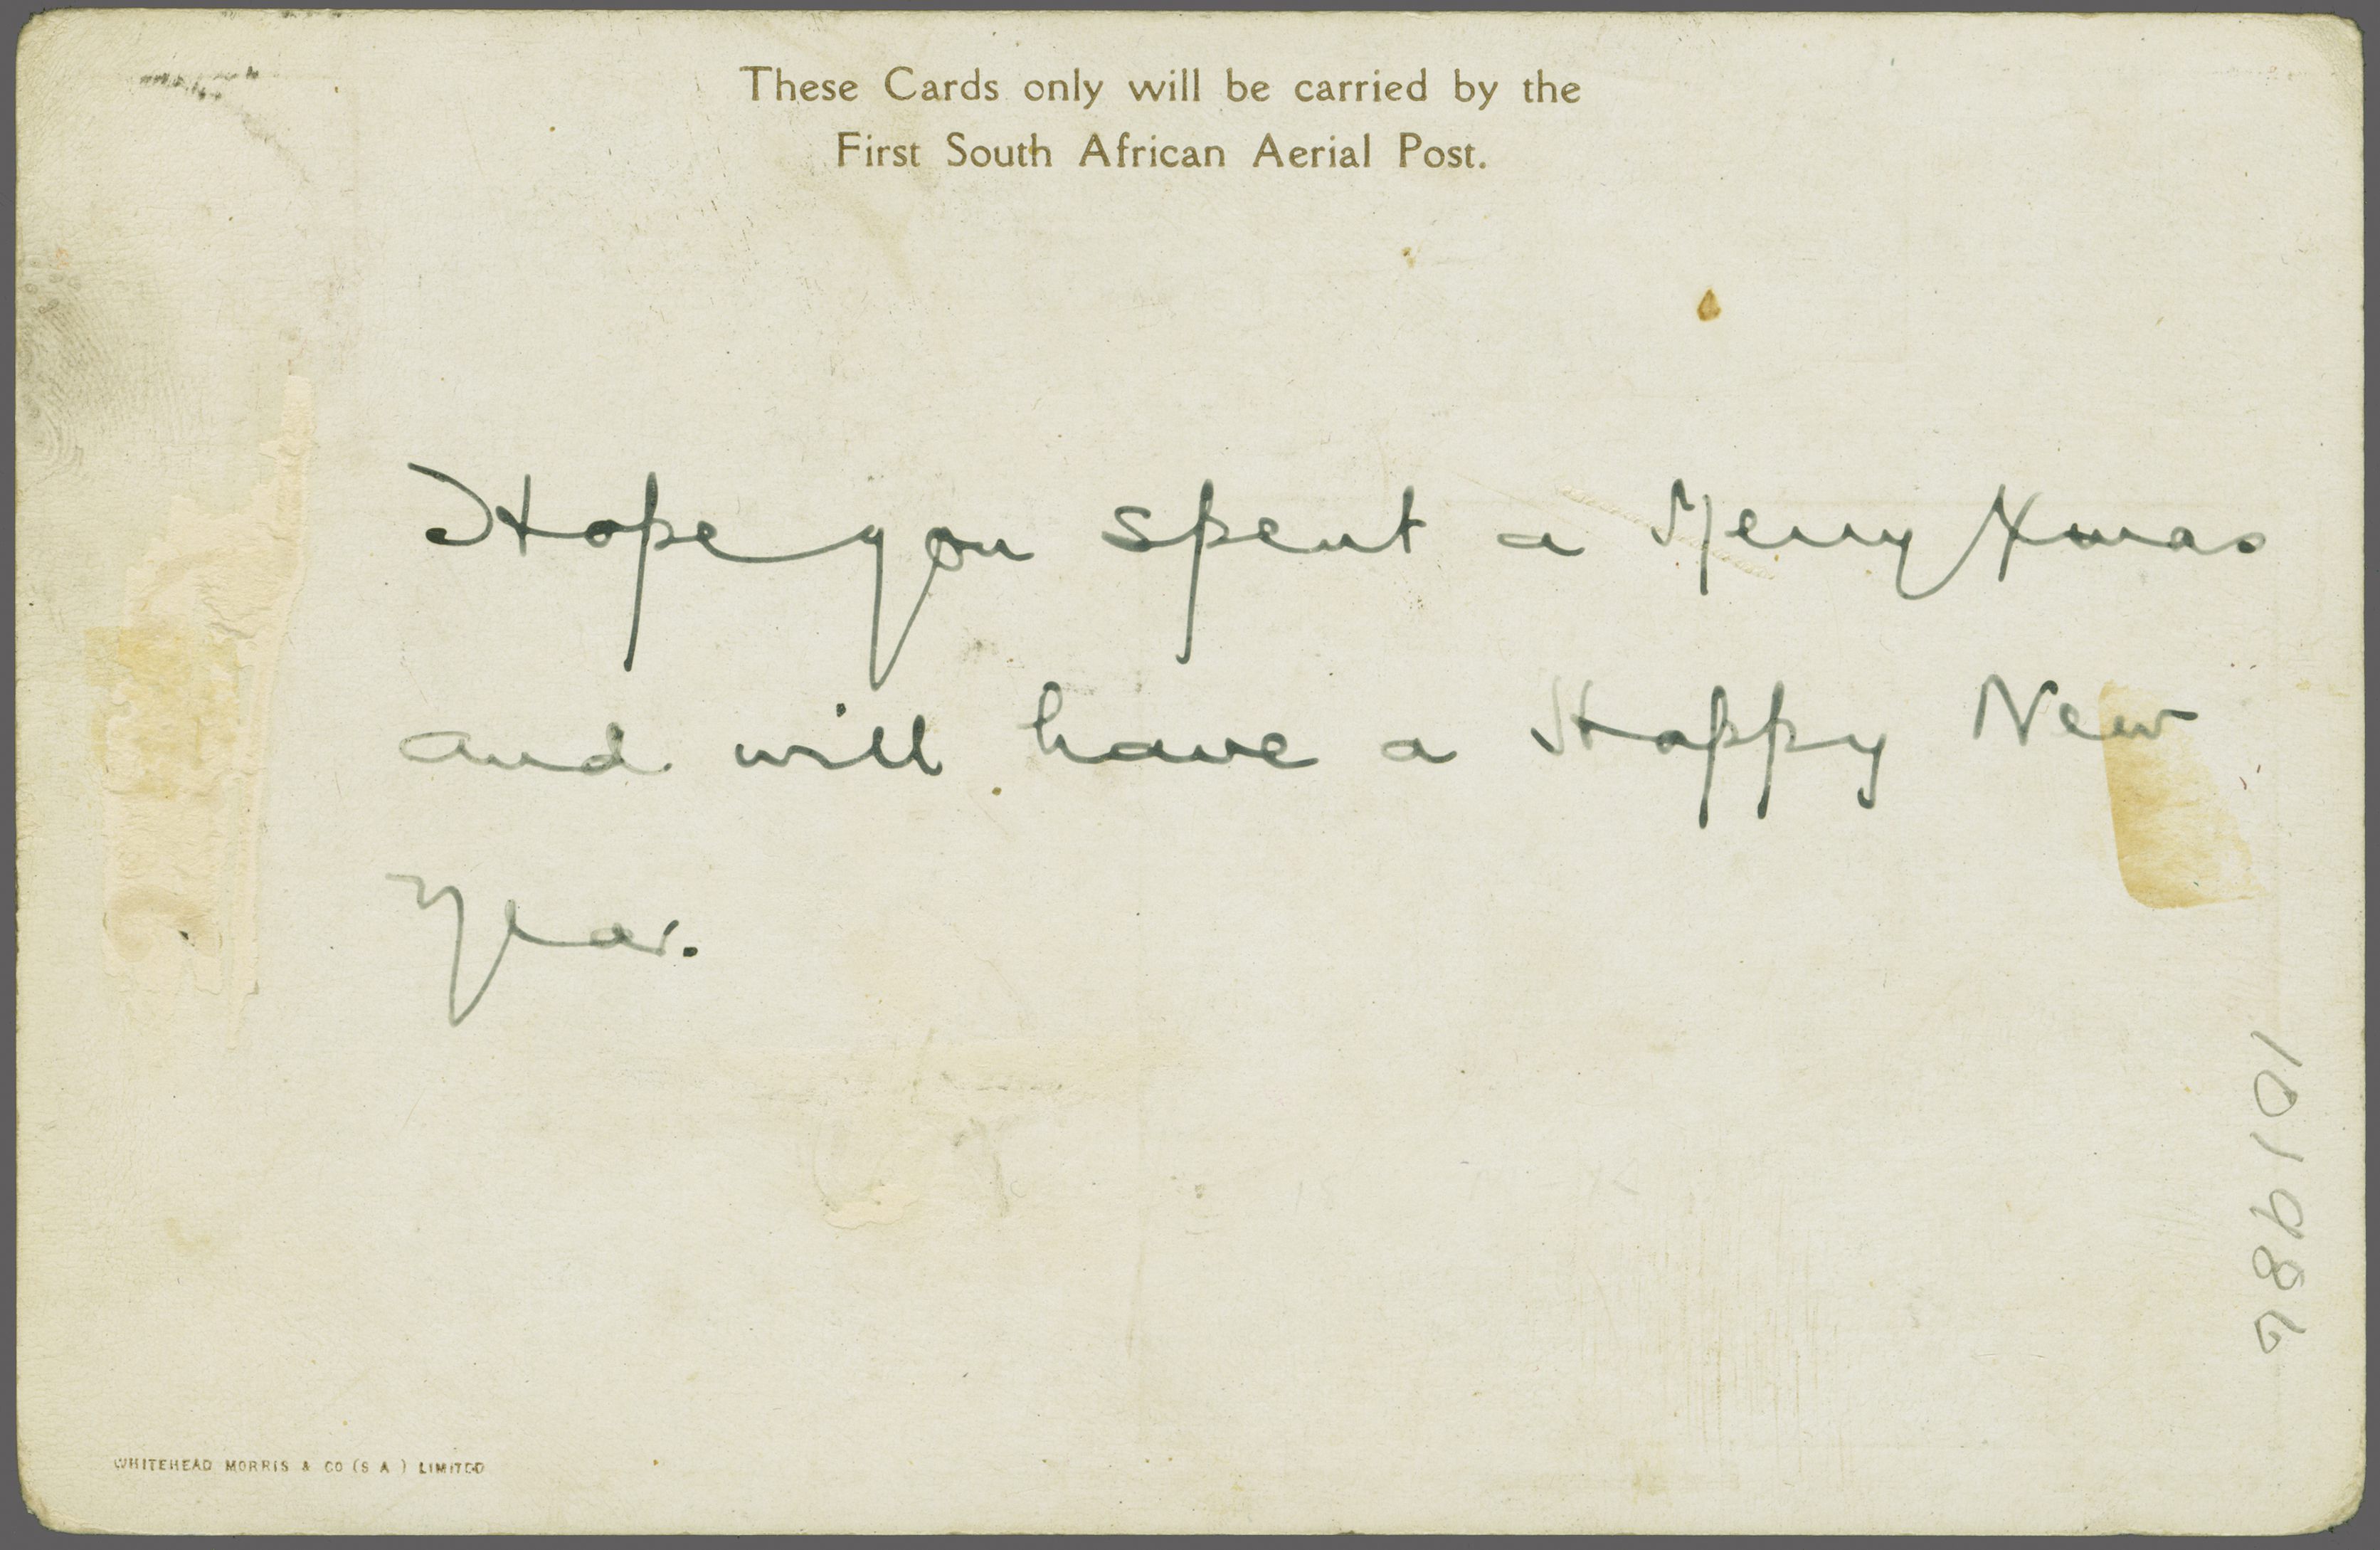 These Cards only will be carried by the
First South African Aerial Post.
Hope you spent a Merry Xmas
and will have a Happy New
Year.
101986
WHITEHEAD MORRIS & CO (S A ) LIMITED